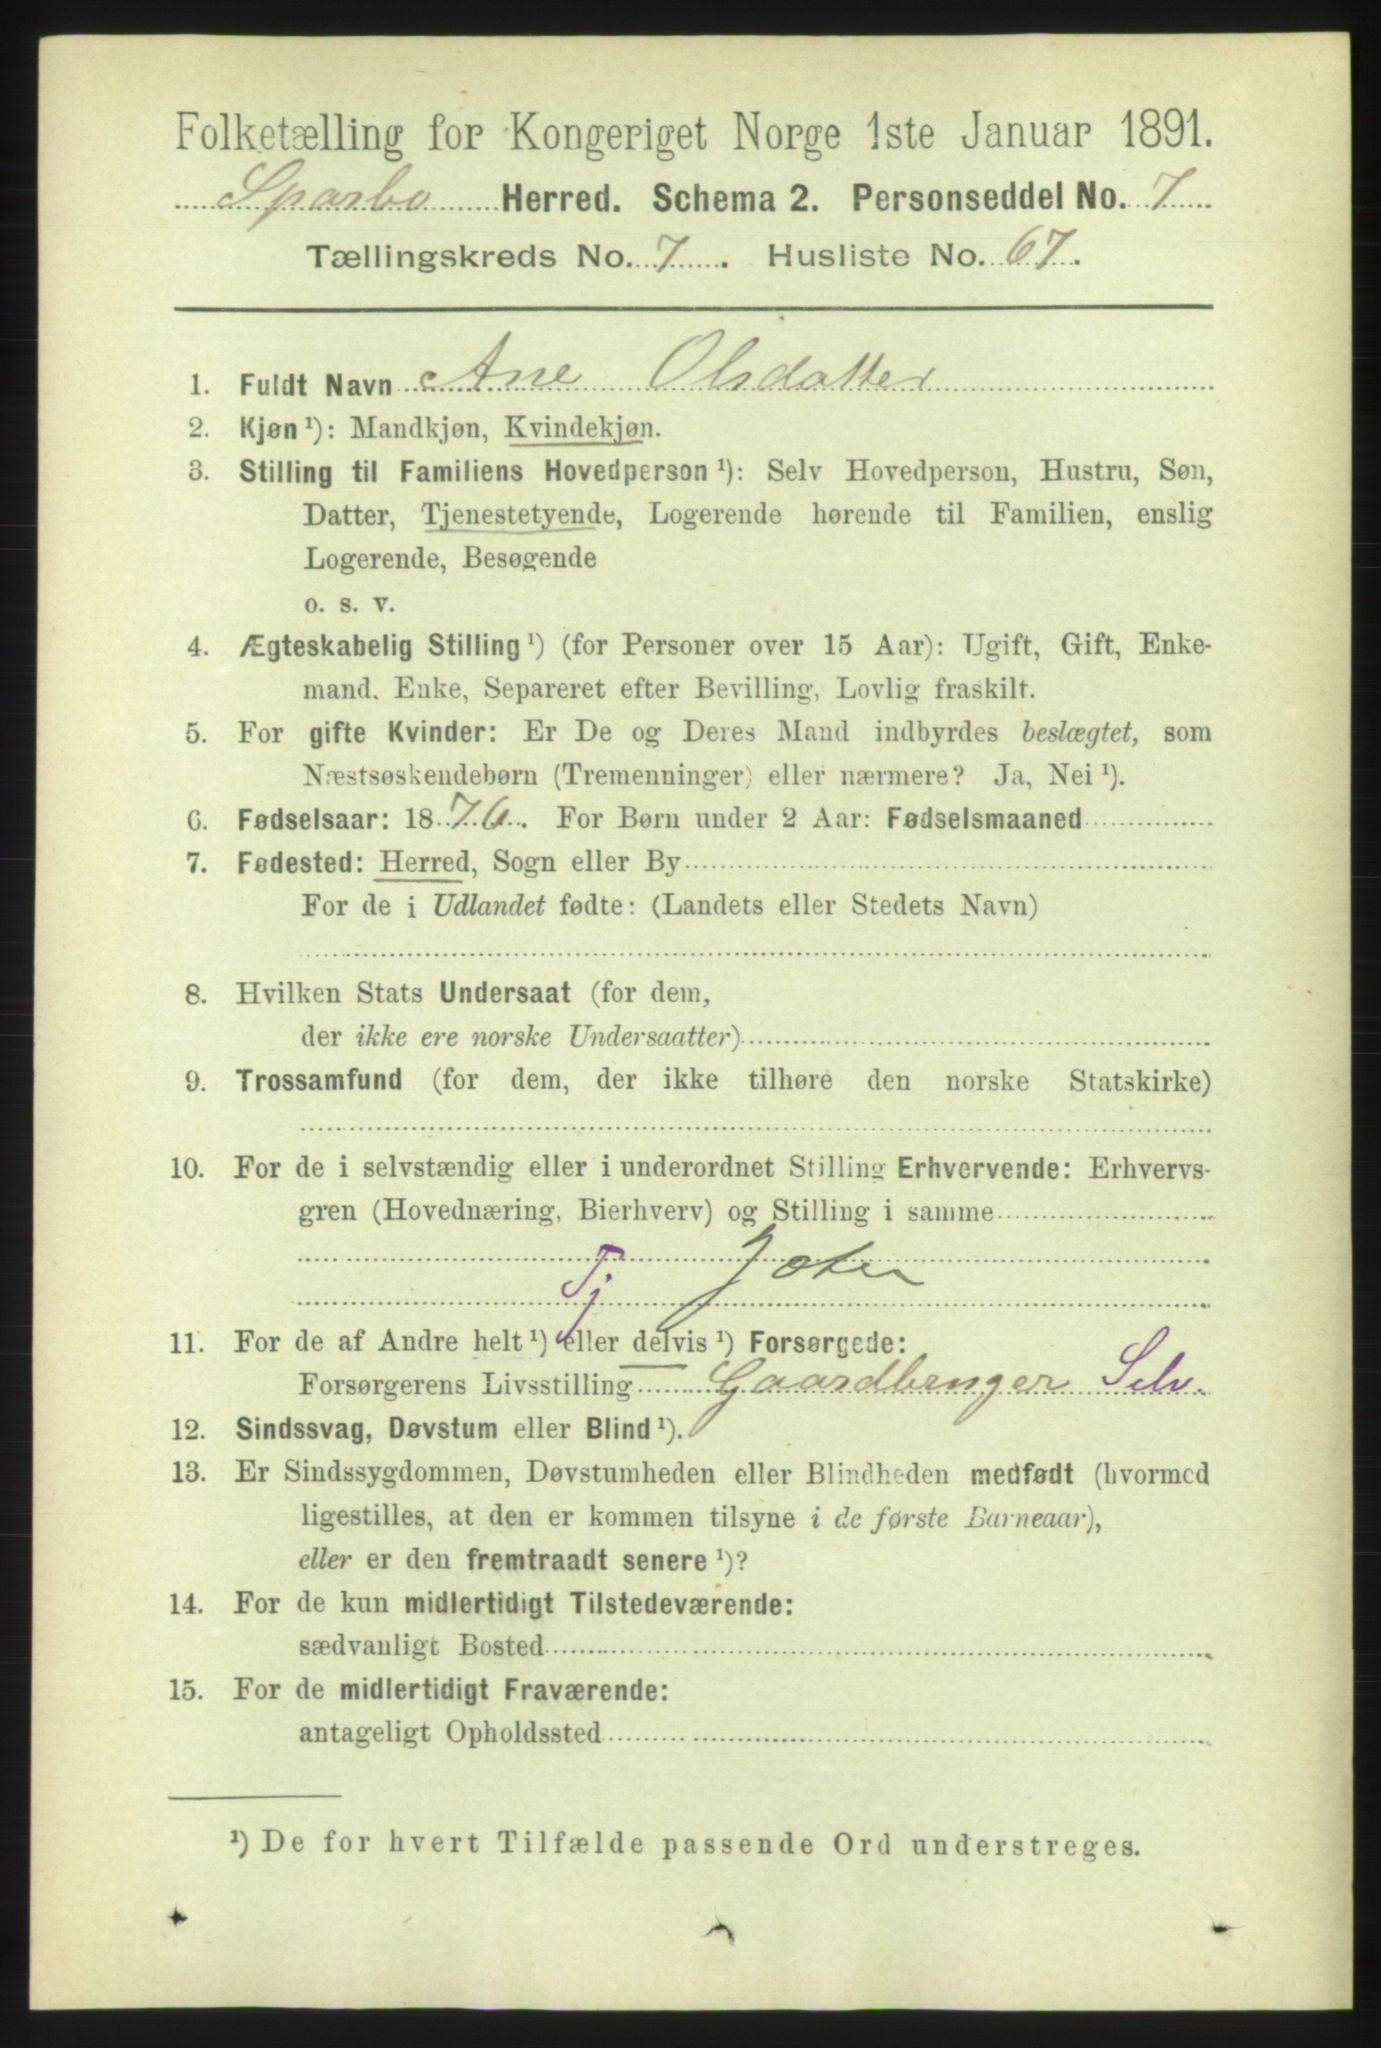 Folketælling for Kongeriget Norge 1ste Januar 1891.
Sparbo Herred. Schema 2. Personseddel No. 7
Tællingskreds No. 7. Husliste No. 67.
1. Fuldt Navn Ane Olsdatter
2. Kjøn ¹): Mandkjøn, Kvindekjøn.
3. Stilling til Familiens Hovedperson ¹): Selv Hovedperson, Hustru, Søn,
Datter, Tjenestetyende, Logerende hørende til Familien, enslig
Logerende, Besøgende
o. s. v.
4. Ægteskabelig Stilling ¹) (for Personer over 15 Aar): Ugift, Gift, Enke-
mand, Enke, Separeret efter Bevilling, Lovlig fraskilt.
5. For gifte Kvinder: Er De og Deres Mand indbyrdes beslægtet, som
Næstsøskendebørn (Tremenninger) eller nærmere? Ja, Nei ¹).
6. Fødselsaar: 1876. For Børn under 2 Aar: Fødselsmaaned
7. Fødested: Herred, Sogn eller By
For de i Udlandet fødte: (Landets eller Stedets Navn)
8. Hvilken Stats Undersaat (for dem,
der ikke ere norske Undersaatter)
9. Trossamfund (for dem, der ikke tilhøre den norske Statskirke)
10. For de i selvstændig eller i underordnet Stilling Erhvervende: Erhvervs-
gren (Hovednæring, Bierhverv) og Stilling i samme
Tj
11. For de af Andre helt ¹) eller delvis ¹) Forsørgede:
Forsørgerens Livsstilling Gaardbruger Selv.
12. Sindssvag, Døvstum eller Blind ¹).
13. Er Sindssygdommen, Døvstumheden eller Blindheden medfødt (hvormed
ligestilles, at den er kommen tilsyne i de første Barneaar),
eller er den fremtraadt senere ¹)?
14. For de kun midlertidigt Tilstedeværende:
sædvanligt Bosted
15. For de midlertidigt Fraværende:
antageligt Opholdssted
¹) De for hvert Tilfælde passende Ord understreges.